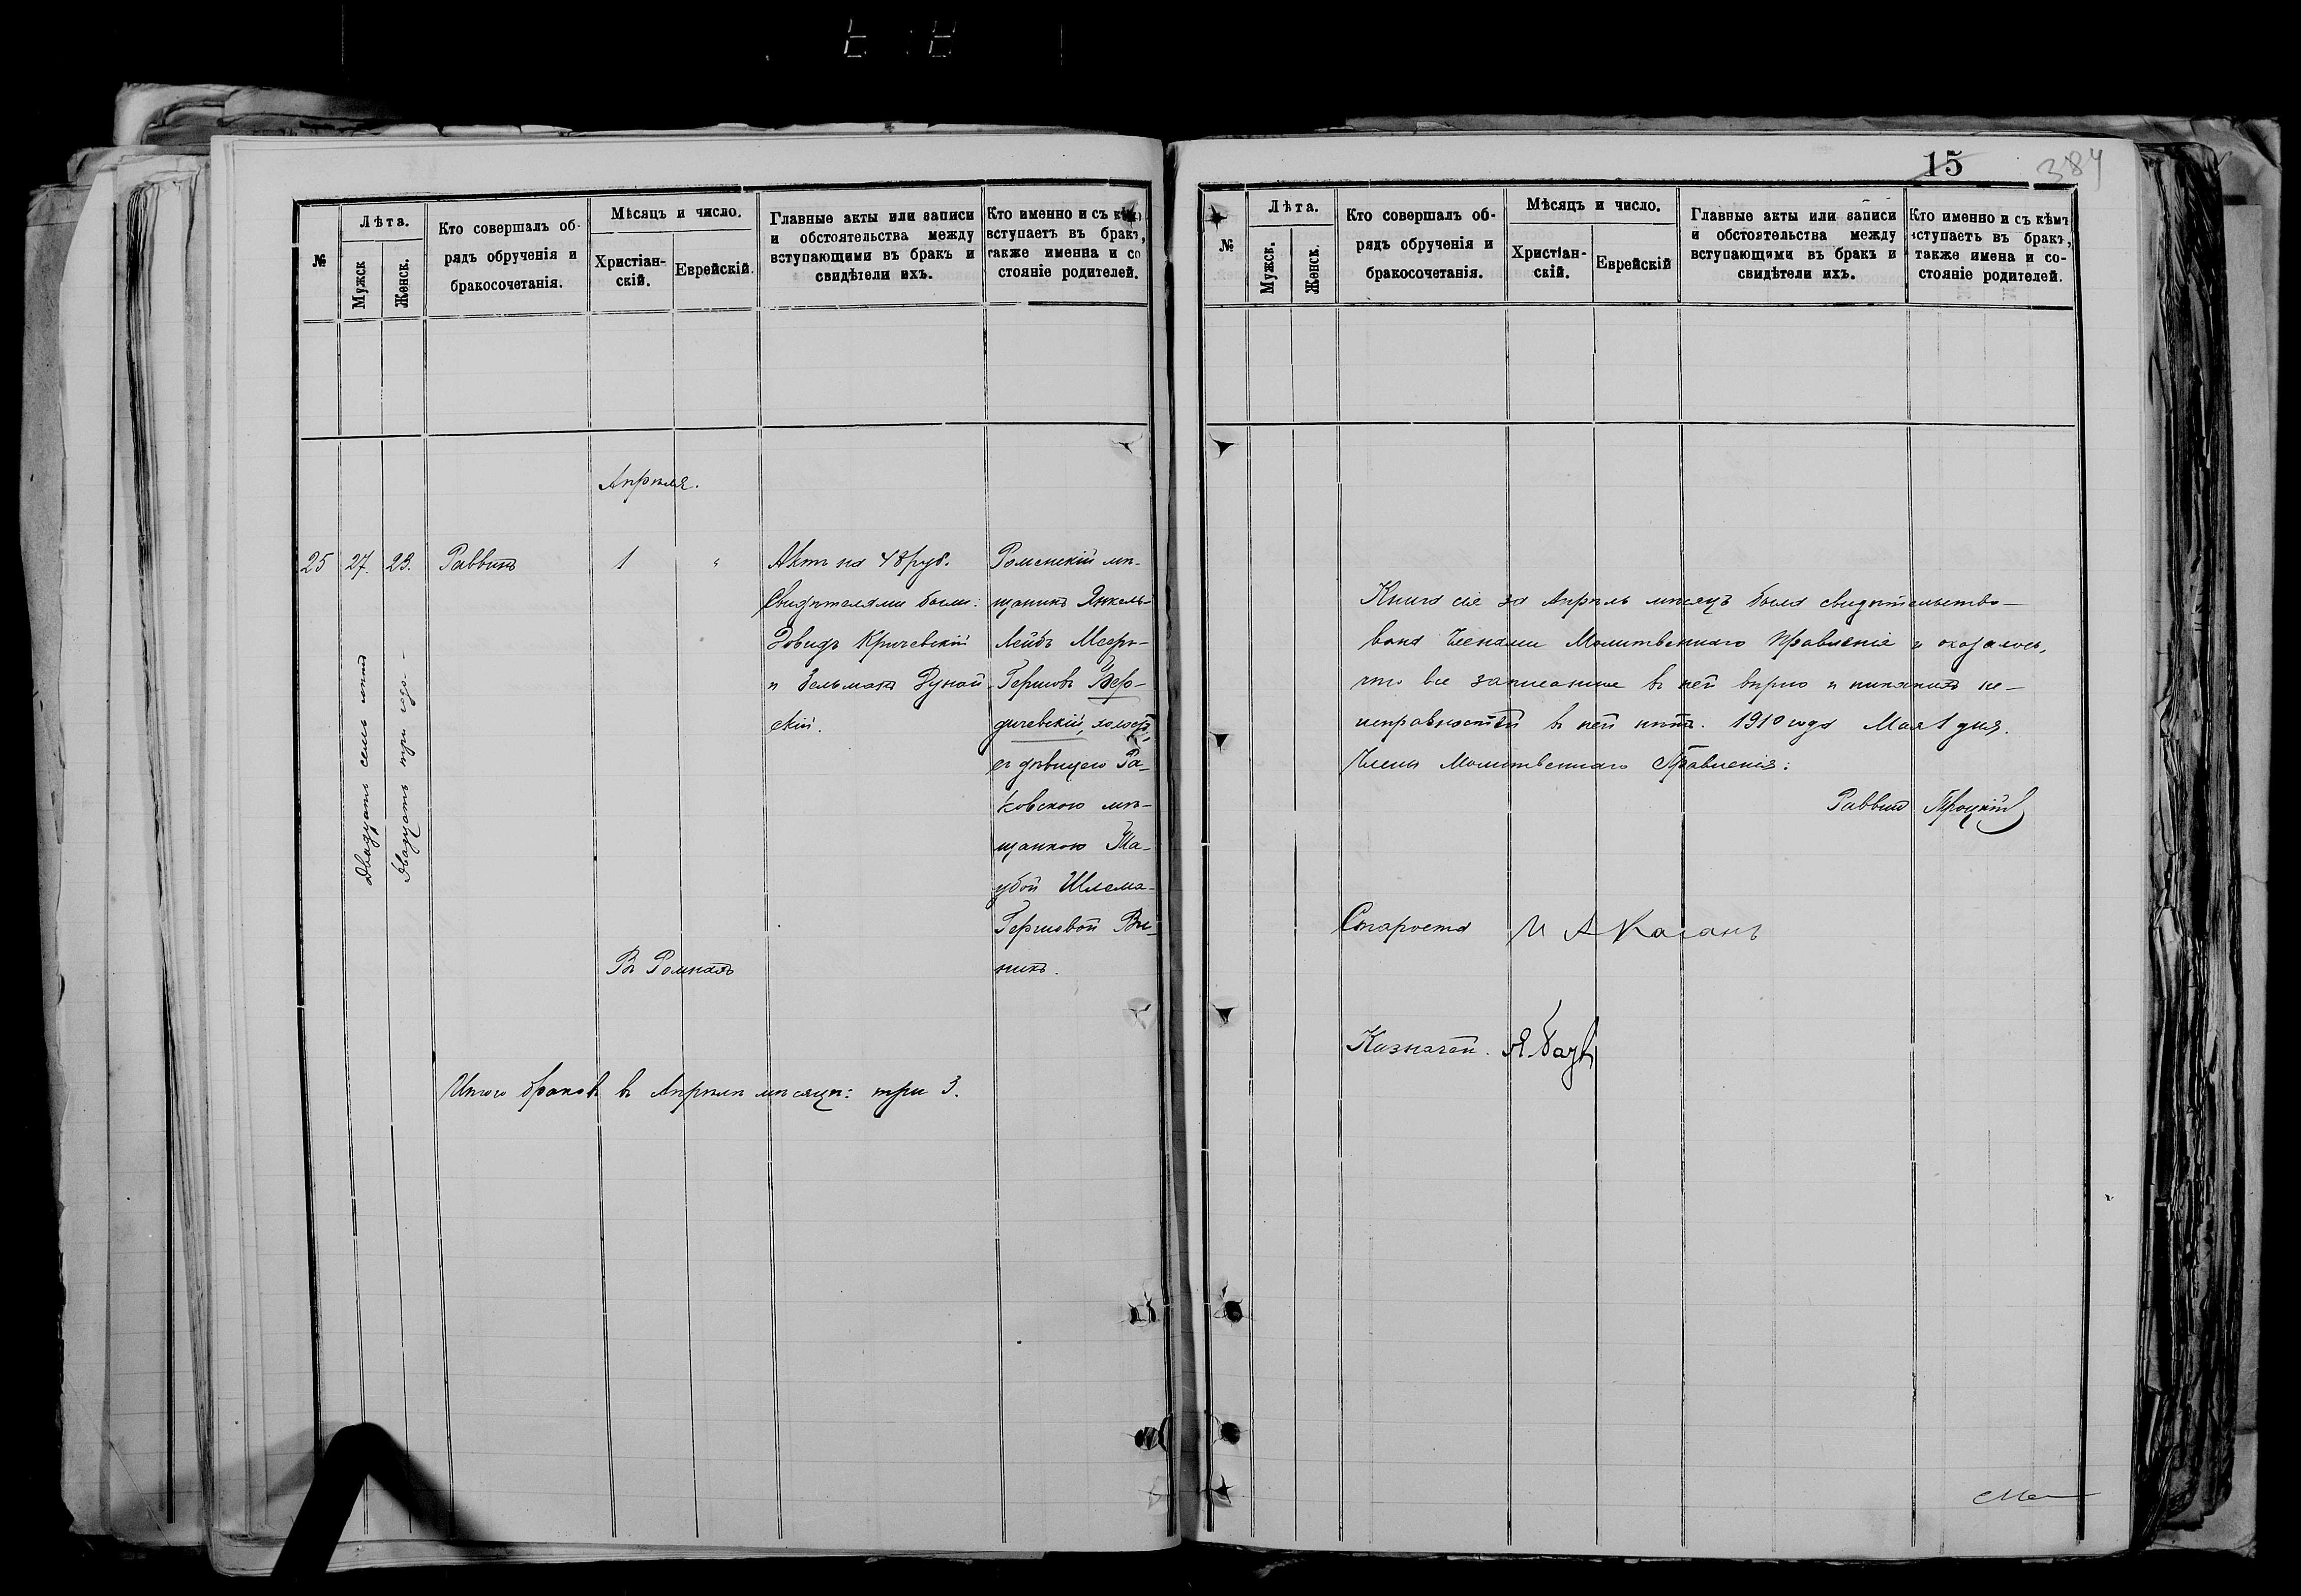 №
Лѣта.
Мужск
Женск.
Кто совершалъ об-
рядъ обрученія и
бракосочетанія.
Мѣсяцъ и число.
Христіан-
скій.
Еврейскій.
Главные акты или записи
и обстоятельства между
вступающими въ бракъ и
свидѣтели ихъ.
Кто именно и съ кѣмъ
вступаетъ въ бракъ,
также именна и со
стояніе родителей.
Апрѣля.
25
27.
23.
Двадцать семь лѣтъ
Двадцать три года
Раввинъ
1
"
Актъ на 48 руб.
Свидѣтелями были:
Довидъ Кричевскій
и Зельманъ Дунай
скій.
Роменскій мѣ-
щанинъ Янкель-
Лейбъ Мееро-
Гершовъ Бер-
дичевскій, холостъ,
съ дѣвицею Ра-
ковскою мѣ-
щанкою Та-
убой Шлема-
Гершовой Ви-
никъ.
Въ Ромнахъ
Итого браковъ въ Апрѣлѣ мѣсяцѣ: три 3.
15
384
№
Лѣта.
Мужск.
Женск.
Кто совершалъ об-
рядъ обрученія и
бракосочетанія.
Мѣсяцъ и число.
Христіан-
скій.
Еврейскій
Главные акты или записи
и обстоятельства между
вступающими въ бракъ и
свидѣтели ихъ.
Кто именно и съ кѣмъ
вступаетъ въ бракъ,
также имена и со-
стояніе родителей.
Книга сія за Апрѣль мѣсяцъ была свидѣтельство-
вана Членами Молитвеннаго Правленія и оказалось,
что все записанное въ ней вѣрно и никакихъ не-
исправностей въ ней нѣтъ. 1910 года Мая 1 дня.
Члены Молитвеннаго Правленія:
Раввинъ Троцкій
Староста И А Каганъ
Казначей.